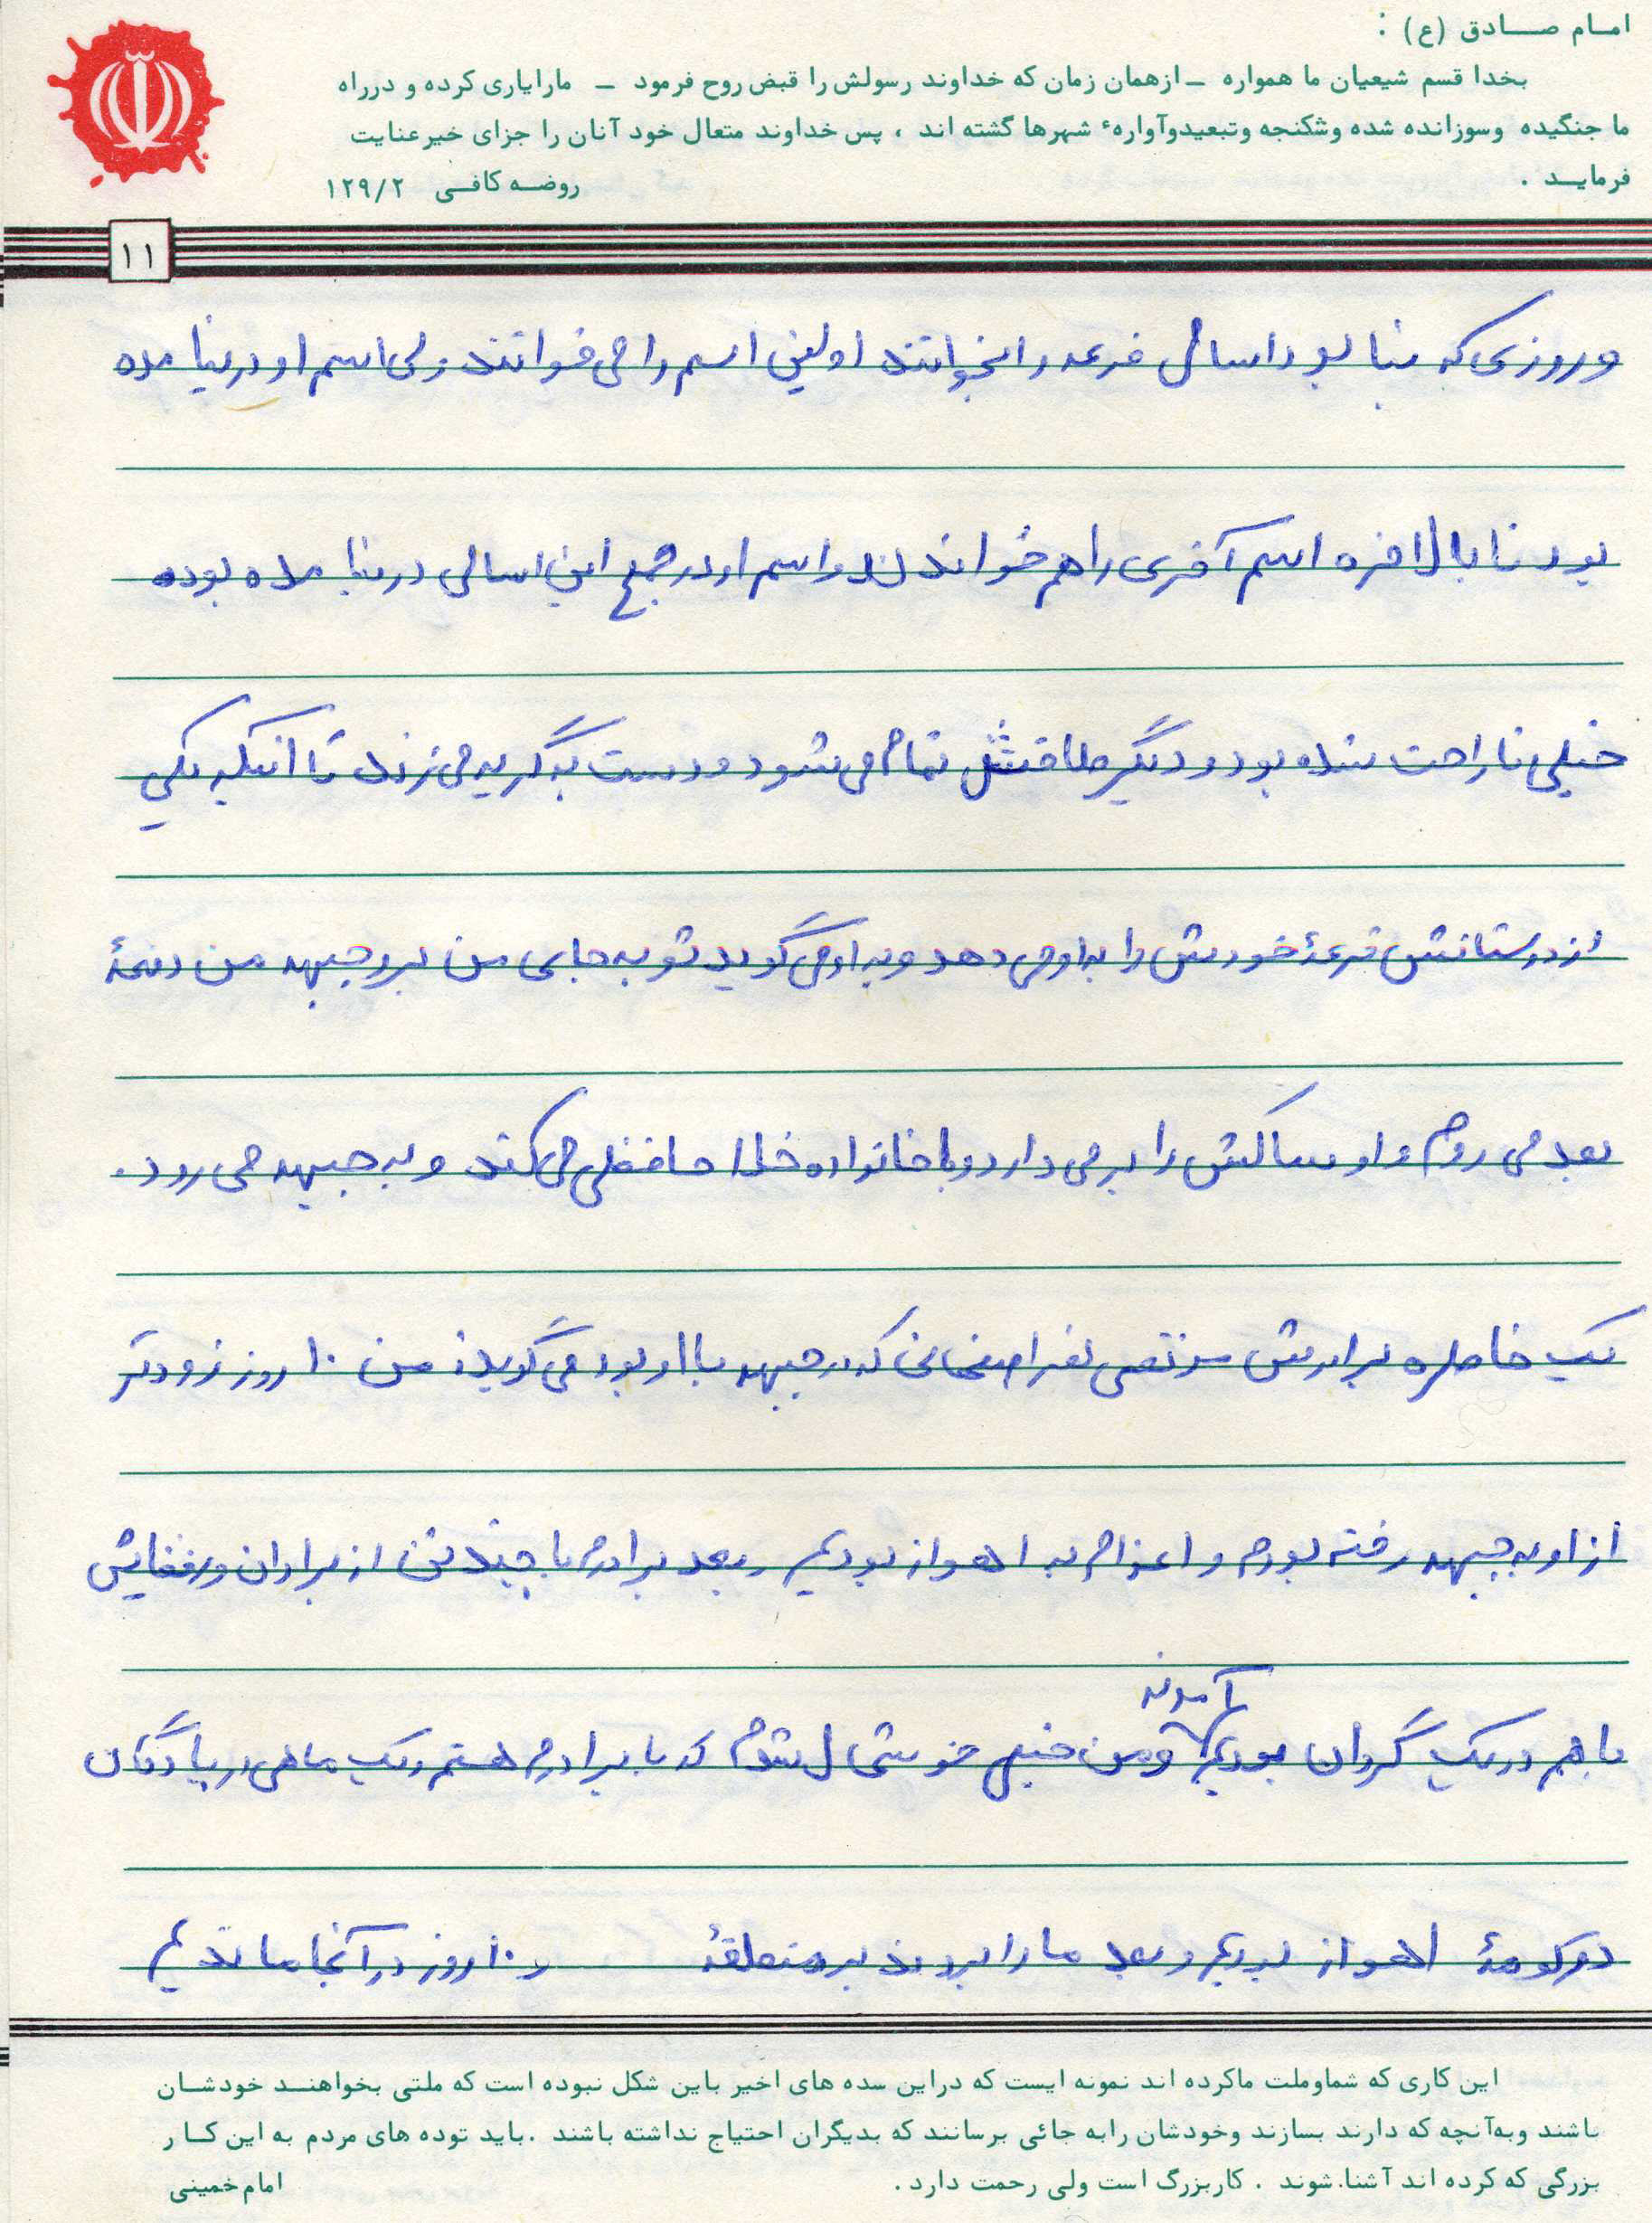 امام صادق (ع) :
بخدا قسم شیعیان ما همواره ـ ازهمان زمان که خداوند رسولش را قبض روح فرمود ـ مارایاری کرده و درراه
ما جنگیده وسوزانده شده وشکنجه وتبعیدوآوارهٔ شهرها گشته اند ، پس خداوند متعال خود آنان را جزای خیر عنایت
فرماید .
روضه کافی ۱۲۹/۲
۱۱
و روزی که بنا بود اسامی قرعه را بخوانند اولین اسم را می خوانند ولی اسم او در نیامده
بود تا بالاخره اسم آخری را هم خواندند و اسم او در جمع این اسامی در نیامده بوده
خیلی ناراحت شده بود و دیگر طاقتش تمام می شود و دست به گریه می زند تا اینکه یکی
از دوستانش قرعهٔ خودش را به او می دهد و به او می گوید تو به جای من برو جبهه من دفعهٔ
بعد می روم و او ساکش را برمی دارد و با خانواده خداحافظی می کند و به جبهه می رود.
یک خاطره برادرش مرتضی که در جبهه با او بود می گوید: من ۱۰ روز زودتر
از او به جبهه رفته بودم و اعزام به اهواز بودیم و بعد برادرم با چند تن از برادران و رفقایش
آمدند
باهم در یک گردان بودیم و من خیلی خوشحال شدم که با برادرم هستم و یک ماهی در پادگان
دوکوههٔ اهواز بودیم و بعد ما را بردند به منطقهٔ و ۱۰ روز در آنجا ماندیم
این کاری که شماوملت ماکرده اند نمونه ایست که دراین سده های اخیر باین شکل نبوده است که ملتی بخواهند خودشان
باشند وبه‌آنچه که دارند بسازند وخودشان رابه جائی برسانند که بدیگران احتیاج نداشته باشند .باید توده های مردم به این کار
بزرگی که کرده اند آشنا.شوند . کاربزرگ است ولی رحمت دارد .
امام خمینی